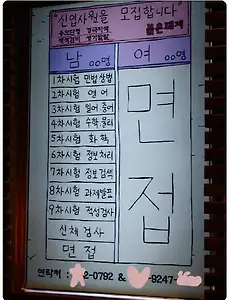 "신입사원을 모집합니다"
남 00명
여 00명
1차시험 민법상법
2차시험 영어
3차시험 일어 중어
4차시험 수학 물리
5차시험 화학
6차시험 정보처리
7차시험 정보검색
8차시험 과제발표
9차시험 적성검사
신체검사
면접
면접
연락처 : 2-0792 & -9247-